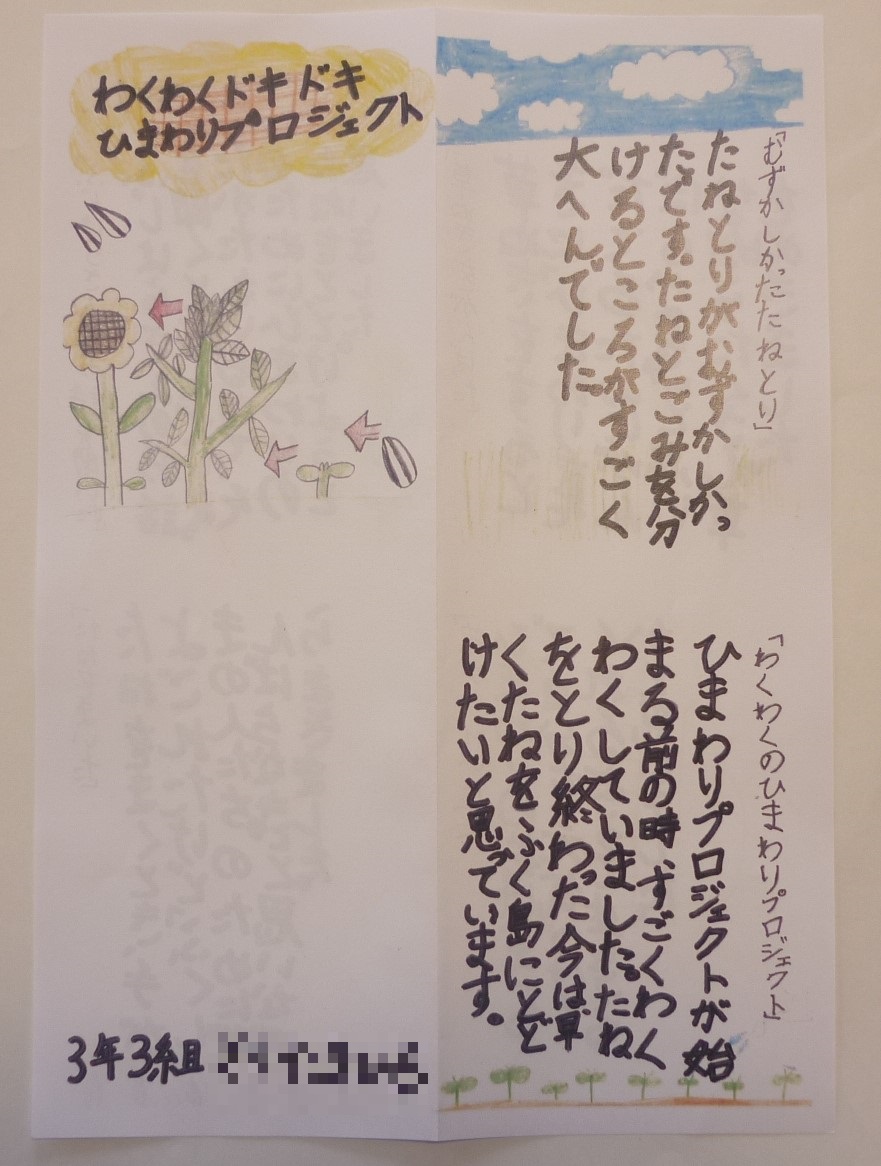 わくわくドキドキ
ひまわりプロジェクト
3年3組
「むずかしかったたねとり」
たねとりがむずかしかっ
たです。たねとごみを分
けるところがすごく
大へんでした。
「わくわくのひまわりプロジェクト」
ひまわりプロジェクトが始
まる前の時、すごくわく
わくしていました。たね
をとり終わった今は、早
くたねをふく島にとど
けたいと思っています。